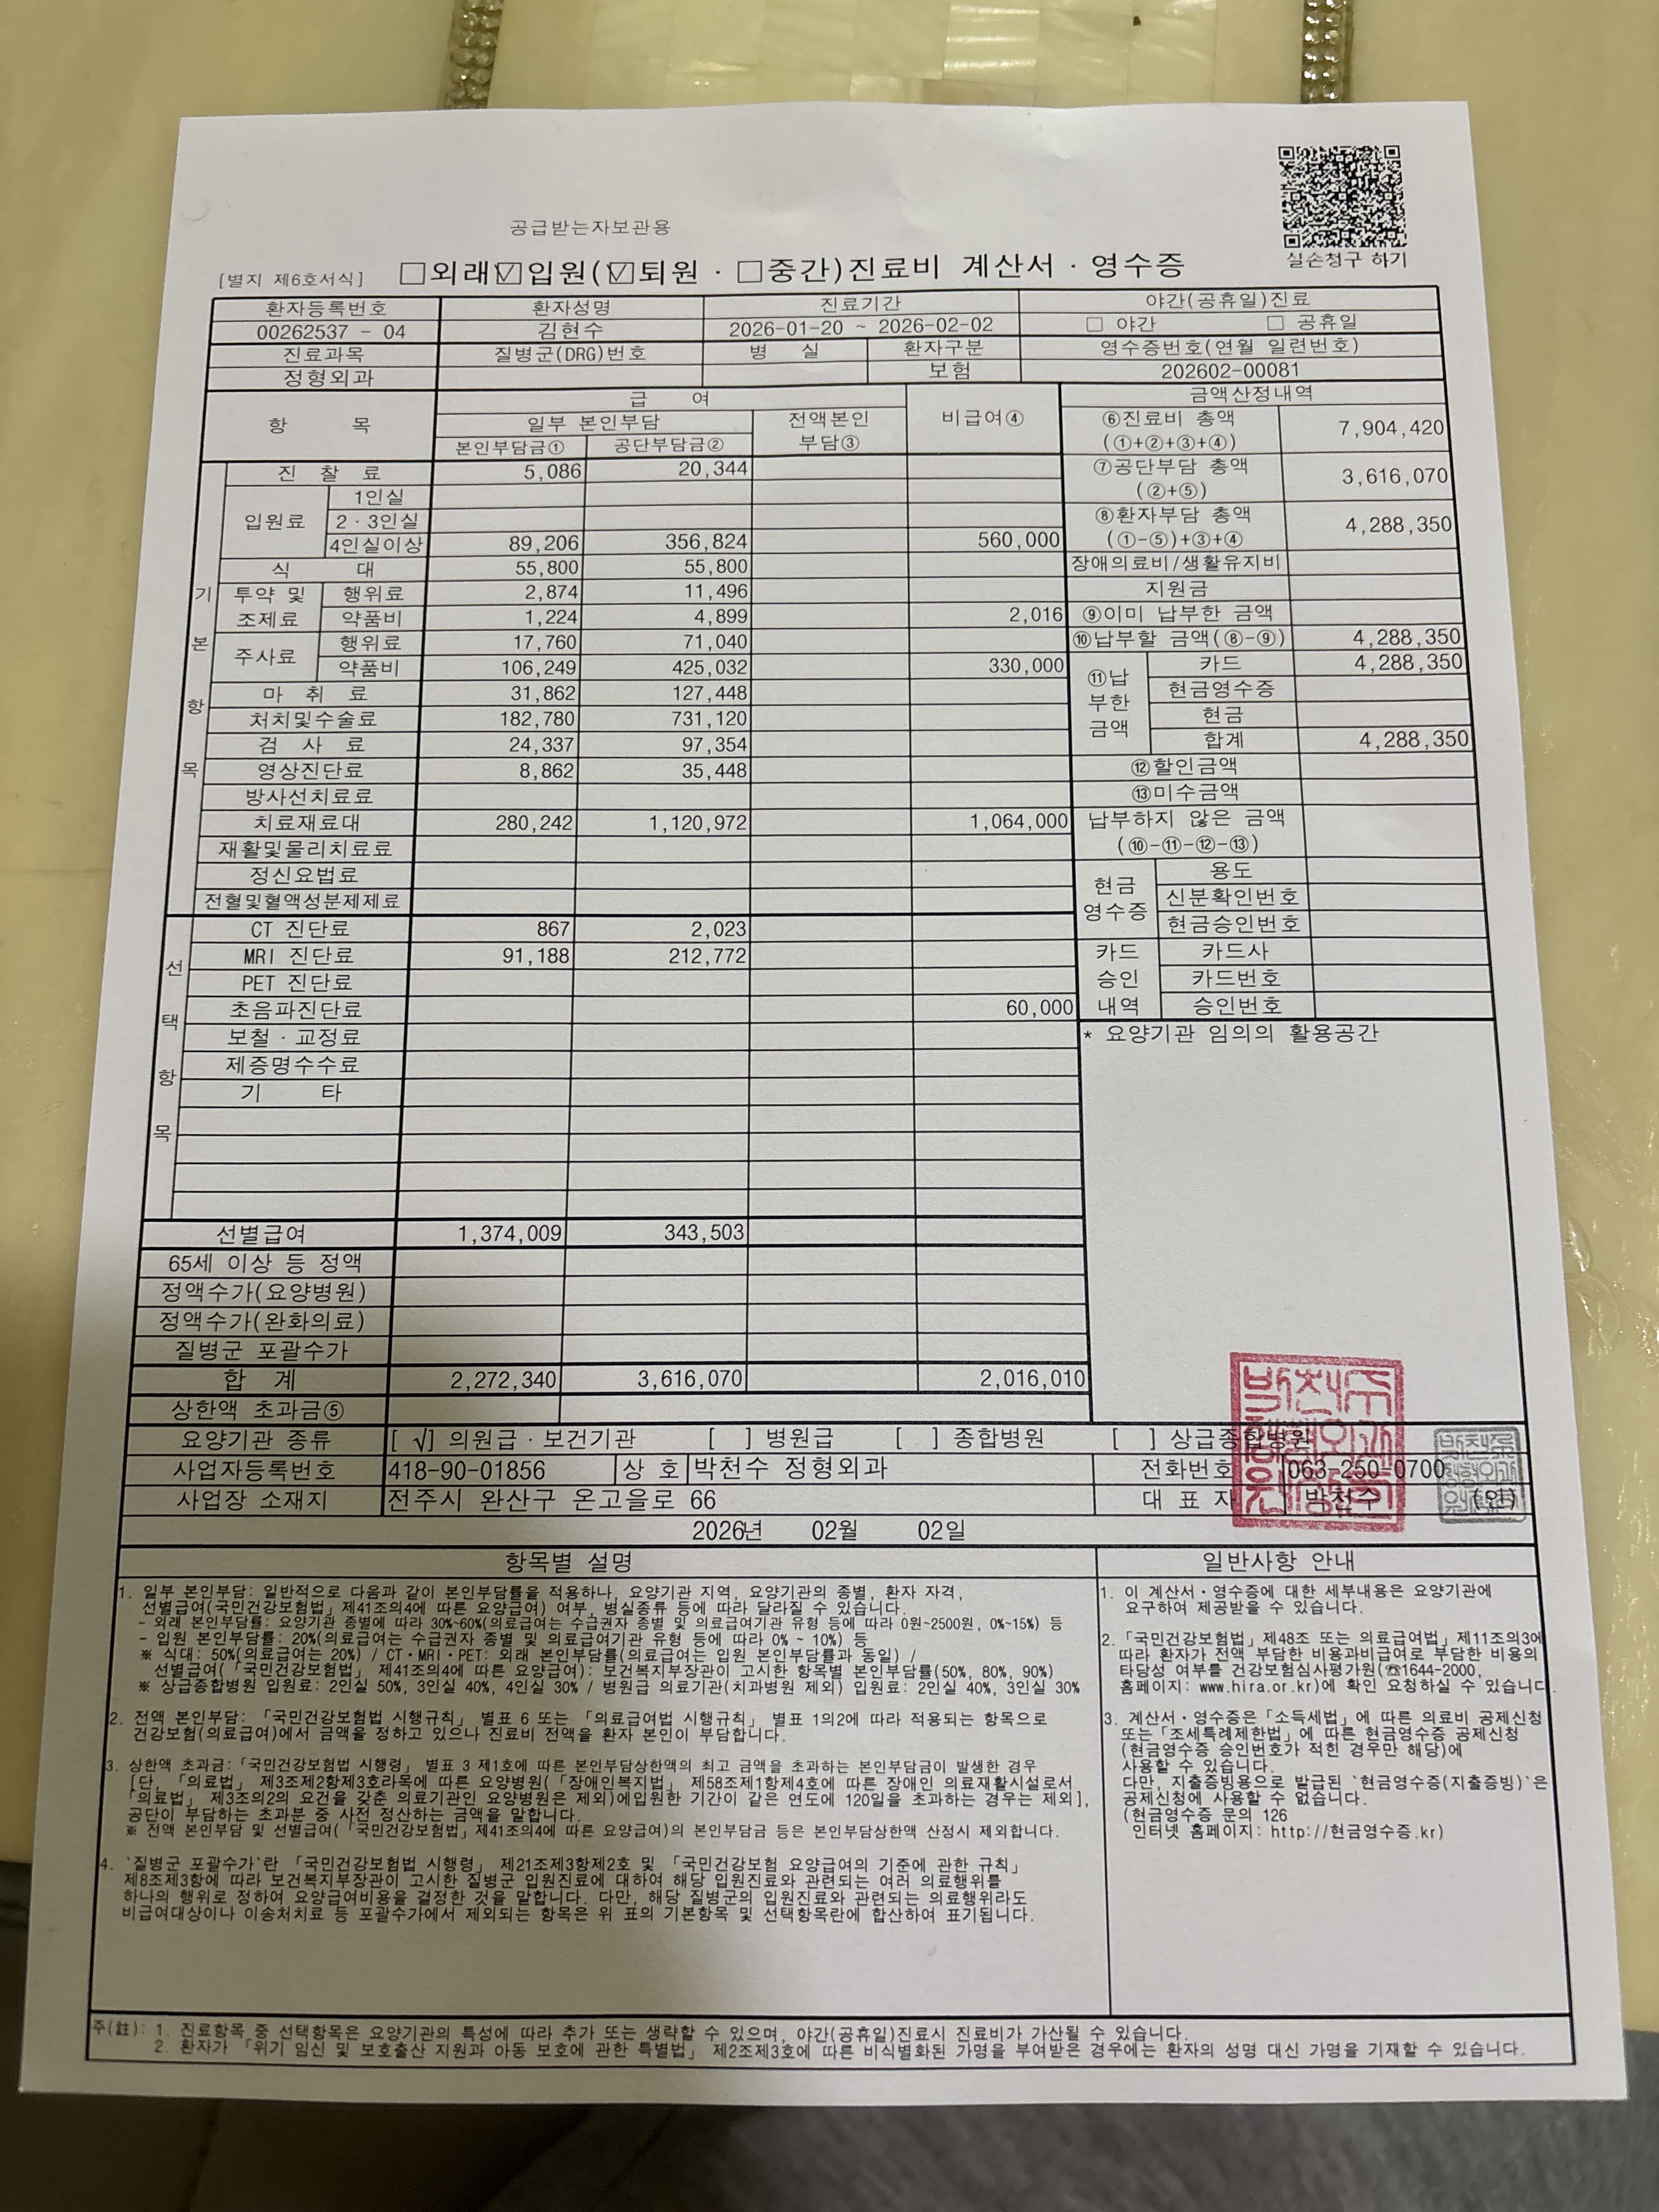 공급받는자보관용
실손청구 하기
[별지 제6호서식] □외래☑입원(☑퇴원 · □중간)진료비 계산서 · 영수증
환자등록번호 환자성명 진료기간 야간(공휴일)진료
00262537 - 04 김현수 2026-01-20 ~ 2026-02-02 □ 야간 □ 공휴일
진료과목 질병군(DRG)번호 병 실 환자구분 영수증번호(연월 일련번호)
정형외과 보험 202602-00081
항 목 급 여 비급여④ 금액산정내역
일부 본인부담 전액본인 부담③
본인부담금① 공단부담금②
기 본 항 목
진 찰 료 5,086 20,344
입원료 1인실
2 · 3인실
4인실이상 89,206 356,824 560,000
식 대 55,800 55,800
투약 및 조제료 행위료 2,874 11,496
약품비 1,224 4,899 2,016
주사료 행위료 17,760 71,040
약품비 106,249 425,032 330,000
마 취 료 31,862 127,448
처치및수술료 182,780 731,120
검 사 료 24,337 97,354
영상진단료 8,862 35,448
방사선치료료
치료재료대 280,242 1,120,972 1,064,000
재활및물리치료료
정신요법료
전혈및혈액성분제제료
선 택 항 목
CT 진단료 867 2,023
MRI 진단료 91,188 212,772
PET 진단료
초음파진단료 60,000
보철 · 교정료
제증명수수료
기 타
선별급여 1,374,009 343,503
65세 이상 등 정액
정액수가(요양병원)
정액수가(완화의료)
질병군 포괄수가
합 계 2,272,340 3,616,070 2,016,010
상한액 초과금⑤
⑥진료비 총액 7,904,420
(①+②+③+④)
⑦공단부담 총액 3,616,070
(②+⑤)
⑧환자부담 총액 4,288,350
(①-⑤)+③+④
장애의료비/생활유지비
지원금
⑨이미 납부한 금액
⑩납부할 금액(⑧-⑨) 4,288,350
⑪납부한 금액 카드 4,288,350
현금영수증
현금
합계 4,288,350
⑫할인금액
⑬미수금액
납부하지 않은 금액
(⑩-⑪-⑫-⑬)
현금영수증 용도
신분확인번호
현금승인번호
카드 승인 내역 카드사
카드번호
승인번호
* 요양기관 임의의 활용공간
요양기관 종류 [ √] 의원급 · 보건기관 [ ] 병원급 [ ] 종합병원 [ ] 상급종합병원
사업자등록번호 418-90-01856 상 호 박천수 정형외과 전화번호 063-250-0700
사업장 소재지 전주시 완산구 온고을로 66 대 표 자 박천수 (인)
2026년 02월 02일
항목별 설명
1. 일부 본인부담: 일반적으로 다음과 같이 본인부담률을 적용하나, 요양기관 지역, 요양기관의 종별, 환자 자격,
선별급여(국민건강보험법」제41조의4에 따른 요양급여) 여부, 병실종류 등에 따라 달라질 수 있습니다.
- 외래 본인부담률: 요양기관 종별에 따라 30%~60%(의료급여는 수급권자 종별 및 의료급여기관 유형 등에 따라 0원~2500원, 0%~15%) 등
- 입원 본인부담률: 20%(의료급여는 수급권자 종별 및 의료급여기관 유형 등에 따라 0% ~ 10%) 등
※ 식대: 50%(의료급여는 20%) / CT·MRI·PET: 외래 본인부담률(의료급여는 입원 본인부담률과 동일) /
선별급여(「국민건강보험법」 제41조의4에 따른 요양급여): 보건복지부장관이 고시한 항목별 본인부담률(50%, 80%, 90%)
※ 상급종합병원 입원료: 2인실 50%, 3인실 40%, 4인실 30% / 병원급 의료기관(치과병원 제외) 입원료: 2인실 40%, 3인실 30%
2. 전액 본인부담: 「국민건강보험법 시행규칙」 별표 6 또는 「의료급여법 시행규칙」 별표 1의2에 따라 적용되는 항목으로
건강보험(의료급여)에서 금액을 정하고 있으나 진료비 전액을 환자 본인이 부담합니다.
3. 상한액 초과금:「국민건강보험법 시행령」 별표 3 제1호에 따른 본인부담상한액의 최고 금액을 초과하는 본인부담금이 발생한 경우
[단, 「의료법」 제3조제2항제3호라목에 따른 요양병원(「장애인복지법」 제58조제1항제4호에 따른 장애인 의료재활시설로서
「의료법」 제3조의2의 요건을 갖춘 의료기관인 요양병원은 제외)에입원한 기간이 같은 연도에 120일을 초과하는 경우는 제외],
공단이 부담하는 초과분 중 사전 정산하는 금액을 말합니다.
※ 전액 본인부담 및 선별급여(「국민건강보험법」제41조의4에 따른 요양급여)의 본인부담금 등은 본인부담상한액 산정시 제외합니다.
4. `질병군 포괄수가`란 「국민건강보험법 시행령」 제21조제3항제2호 및 「국민건강보험 요양급여의 기준에 관한 규칙」
제8조제3항에 따라 보건복지부장관이 고시한 질병군 입원진료에 대하여 해당 입원진료와 관련되는 여러 의료행위를
하나의 행위로 정하여 요양급여비용을 결정한 것을 말합니다. 다만, 해당 질병군의 입원진료와 관련되는 의료행위라도
비급여대상이나 이송처치료 등 포괄수가에서 제외되는 항목은 위 표의 기본항목 및 선택항목란에 합산하여 표기됩니다.
일반사항 안내
1. 이 계산서·영수증에 대한 세부내용은 요양기관에
요구하여 제공받을 수 있습니다.
2.「국민건강보험법」제48조 또는 의료급여법」제11조의3에
따라 환자가 전액 부담한 비용과비급여로 부담한 비용의
타당성 여부를 건강보험심사평가원(☏1644-2000,
홈페이지: www.hira.or.kr)에 확인 요청하실 수 있습니다.
3. 계산서·영수증은「소득세법」에 따른 의료비 공제신청
또는「조세특례제한법」에 따른 현금영수증 공제신청
(현금영수증 승인번호가 적힌 경우만 해당)에
사용할 수 있습니다.
다만, 지출증빙용으로 발급된 `현금영수증(지출증빙)`은
공제신청에 사용할 수 없습니다.
(현금영수증 문의 126
인터넷 홈페이지: http://현금영수증.kr)
주(註): 1. 진료항목 중 선택항목은 요양기관의 특성에 따라 추가 또는 생략할 수 있으며, 야간(공휴일)진료시 진료비가 가산될 수 있습니다.
2. 환자가 「위기 임신 및 보호출산 지원과 아동 보호에 관한 특별법」 제2조제3호에 따른 비식별화된 가명을 부여받은 경우에는 환자의 성명 대신 가명을 기재할 수 있습니다.